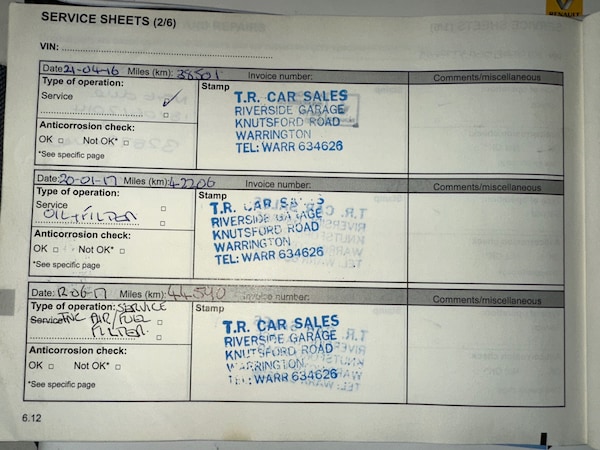 RENAULT
SERVICE SHEETS (2/6)
VIN:
Date: 21-04-16 Miles (km): 38501 Invoice number: Comments/miscellaneous
Type of operation:
Service
Stamp
T.R. CAR SALES
RIVERSIDE GARAGE
KNUTSFORD ROAD
WARRINGTON
TEL: WARR 634626
Anticorrosion check:
OK Not OK*
*See specific page
Date: 20-01-17 Miles (km): 42206 Invoice number: Comments/miscellaneous
Type of operation:
Service
OIL+FILTER
Stamp
T.R. CAR SALES
RIVERSIDE GARAGE
KNUTSFORD ROAD
WARRINGTON
TEL: WARR 634626
Anticorrosion check:
OK Not OK*
*See specific page
Date: 12-06-17 Miles (km): 44540 Invoice number: Comments/miscellaneous
Type of operation: SERVICE
Service INC AIR/FUEL
FILTER.
Stamp
T.R. CAR SALES
RIVERSIDE GARAGE
KNUTSFORD ROAD
WARRINGTON
TEL: WARR 634626
Anticorrosion check:
OK Not OK*
*See specific page
6.12